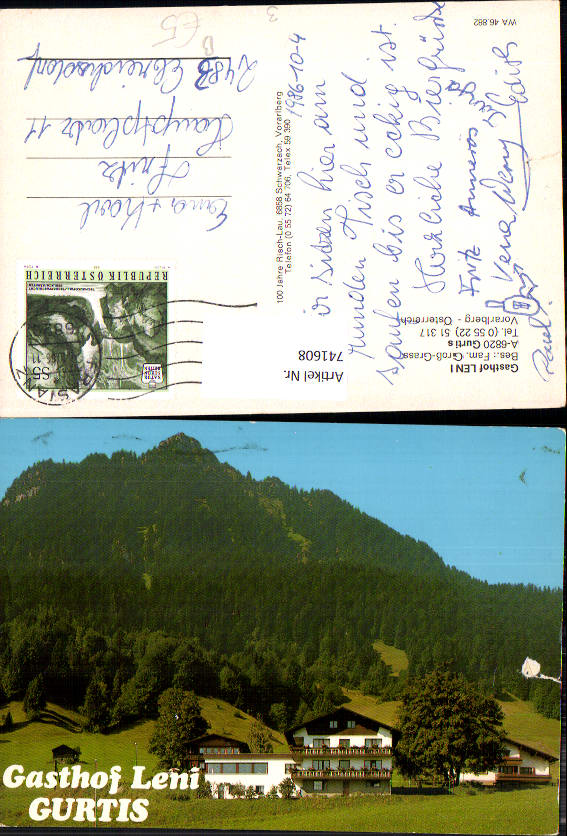 WA 46.882
1986-10-4
ir sitzen hier am
runden Tisch und
saufen bis er eckig ist.
Herzliche Biergrüße
Fritz
Vera
Edith
Paul
Gasthof LENI
Bes.: Fam. Groß-Grass
A-6820 Gurtis
Tel. (0 55 22) 51 317
Vorarlberg - Österreich
100 Jahre Risch-Lau, 6858 Schwarzach, Vorarlberg
Telefon (0 55 72) 64 706, Telex 59 390
Artikel Nr.
741608
REPUBLIK ÖSTERREICH
S5
Erna + Karl
Hauptplatz 11
2483 Ebreichsdorf
£5
B
3
Gasthof Leni
GURTIS